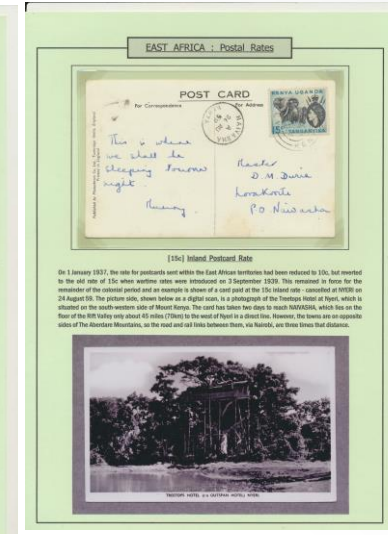 EAST AFRICA : Postal Rates
POST CARD
For Correspondence
For Address
KENYA UGANDA
TANGANYIKA
This is where
we shall be
sleeping tomorrow
night.
Master
D. M. Durie
P.O. Naivasha
NAIVASHA
[15c] Inland Postcard Rate
On 1 January 1937, the rate for postcards sent within the East African territories had been reduced to 10c, but reverted
to the old rate of 15c when wartime rates were introduced on 3 September 1939. This remained in force for the
remainder of the colonial period and an example is shown of a card paid at the 15c inland rate - cancelled at NYERI on
24 August 59. The picture side, shown below as a digital scan, is a photograph of the Treetops Hotel at Nyeri, which is
situated on the south-western side of Mount Kenya. The card has taken two days to reach NAIVASHA, which lies on the
floor of the Rift Valley only about 45 miles (70km) to the west of Nyeri in a direct line. However, the towns are on opposite
sides of The Aberdare Mountains, as the road and rail links between them, via Nairobi, are three times that distance.
TREETOPS HOTEL (c/o OUTSPAN HOTEL) NYERI.